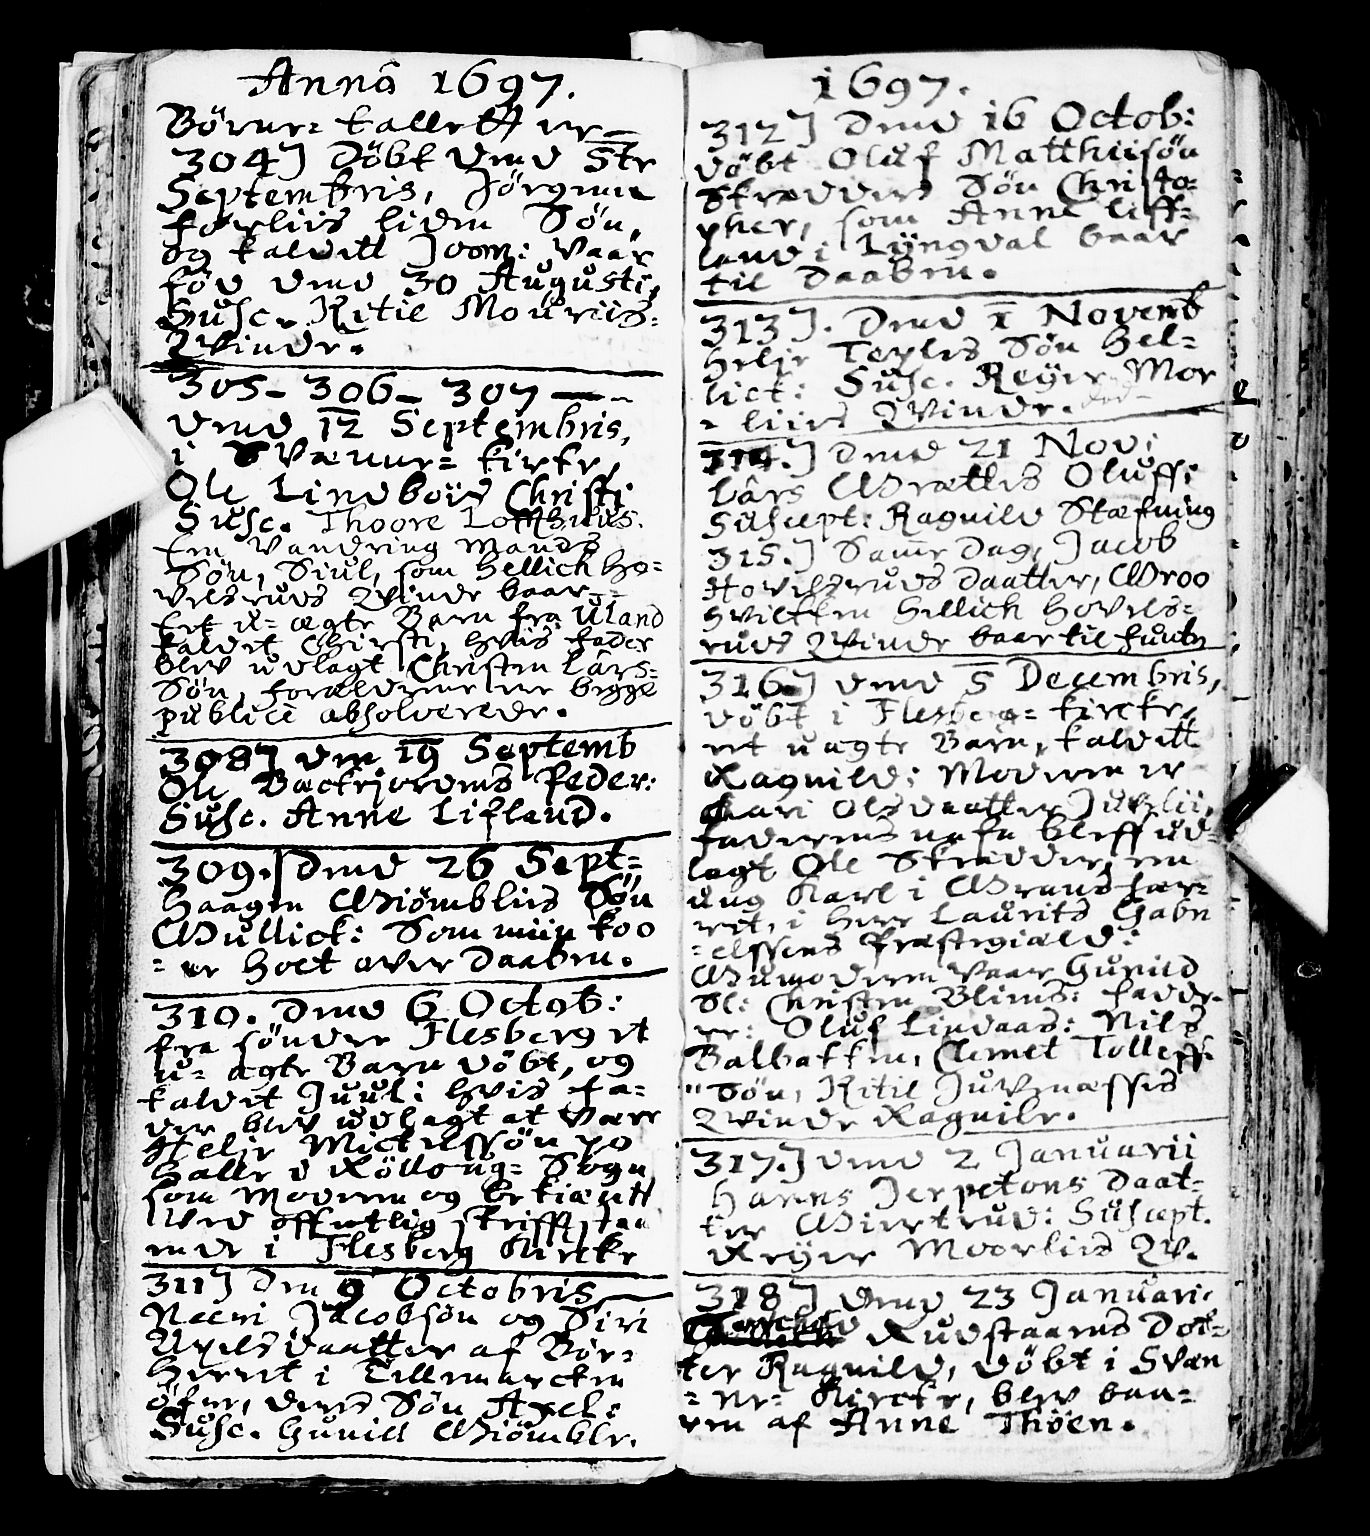 Anno 1697.
Börne= tallet er
304] Döbt dend 5te
Septembris, Jörgen
Førliis liden Søn,
og kaldett Joon: Vaar
föd dend 30 Augusti,
Susc. Kitil Mouriis=
Qvinde.
305- 306- 307 -
dend 12 Septembris,
i Svenne= kircke,
Ole Lindböes Christi
Susc. Thoore Lofthuus.
En Vandring Mands
Søn, Siul, som Hellich Ho=
velsruds Qvinde baar.
Eet u= ægte Barn fra Uland
kaldet Chirsti, hvis fader
blev udlagt Christen Lars=
Søn, forældrene ere begge
publicè absolverede.
308] den 19 Septemb
Ole Backejordens Peder:
Susc. Anne Lifland.
309.] dend 26 Sept=
Haagen Giömbliis Søn
Gullick: Som miin koo
= ne holt over Daaben.
310. dend 6 Octob:
fra sönder Flesberg et
u= ægte Barn döbt, og
kaldet Juul: hvis fa=
der blev udlagt at være
Helje Mickelssön po
Halle i Rölloug= Sogn
som Moderen og bekiendt
Ved offentlig skrifft staa
ende i Flesberg Kircke
311] Den 9 Octobris
Neeri Jacobsøn og Siri
Axelsdaatter af Bör=
herrit i Tellemarcken
öfne, deris Søn Axel:
Susc. Gunild Giömble.
1697.
312] Dend 16 Octob:
döbt Oluf Matthiisön
Skredders Søn Christo=
pher, som Anne Liff=
land i Lyngdal baar
til Daaben.
313]. Dend 1 Novemb
Helje Teples Søn Hel=
lick: Susc. Reyer Mor
= liis Qvinde.
314.] Dend 21 Nov:
Lars Grettes Oluff:
Suscept: Ragnild Stæfning
315.] Same Dag, Jacob
Hovelsruds Daatter, Groo
hvilken Hellich Hovels=
ruds Qvinde baar til funten
316] dend 5 Decembris,
döbt i Flesberg= kircke,
et uægte Barn, kaldett
Ragnild: Moderen er
Kari Olsdaatter Juvelii,
faderens nafn bleff ud=
lagt Ole Skredder, en
ung Karl i Grans her=
rit, i Herr Laurits Gabri
=elssens Prestegiæld:
Gumoderen vaar Gunild
Sl: Christen Bliens: fadde=
re: Oluf Lindaas: Nils
Balbakken, Clemet Tolleffs
= Søn, Kitil Juvenæsses
Qvinde Ragnile.
317.] dend 2 Januarii
Hanns Jerpetøns Daat=
ter Giertrud: Suscept.
Reyer Moorliis Qv.
318] dend 23 Januarii
Rudstaaens Dot=
ter Ragnild, döbt i Sven
= ne= Kircke, blev baa=
ren af Anne Thoen.